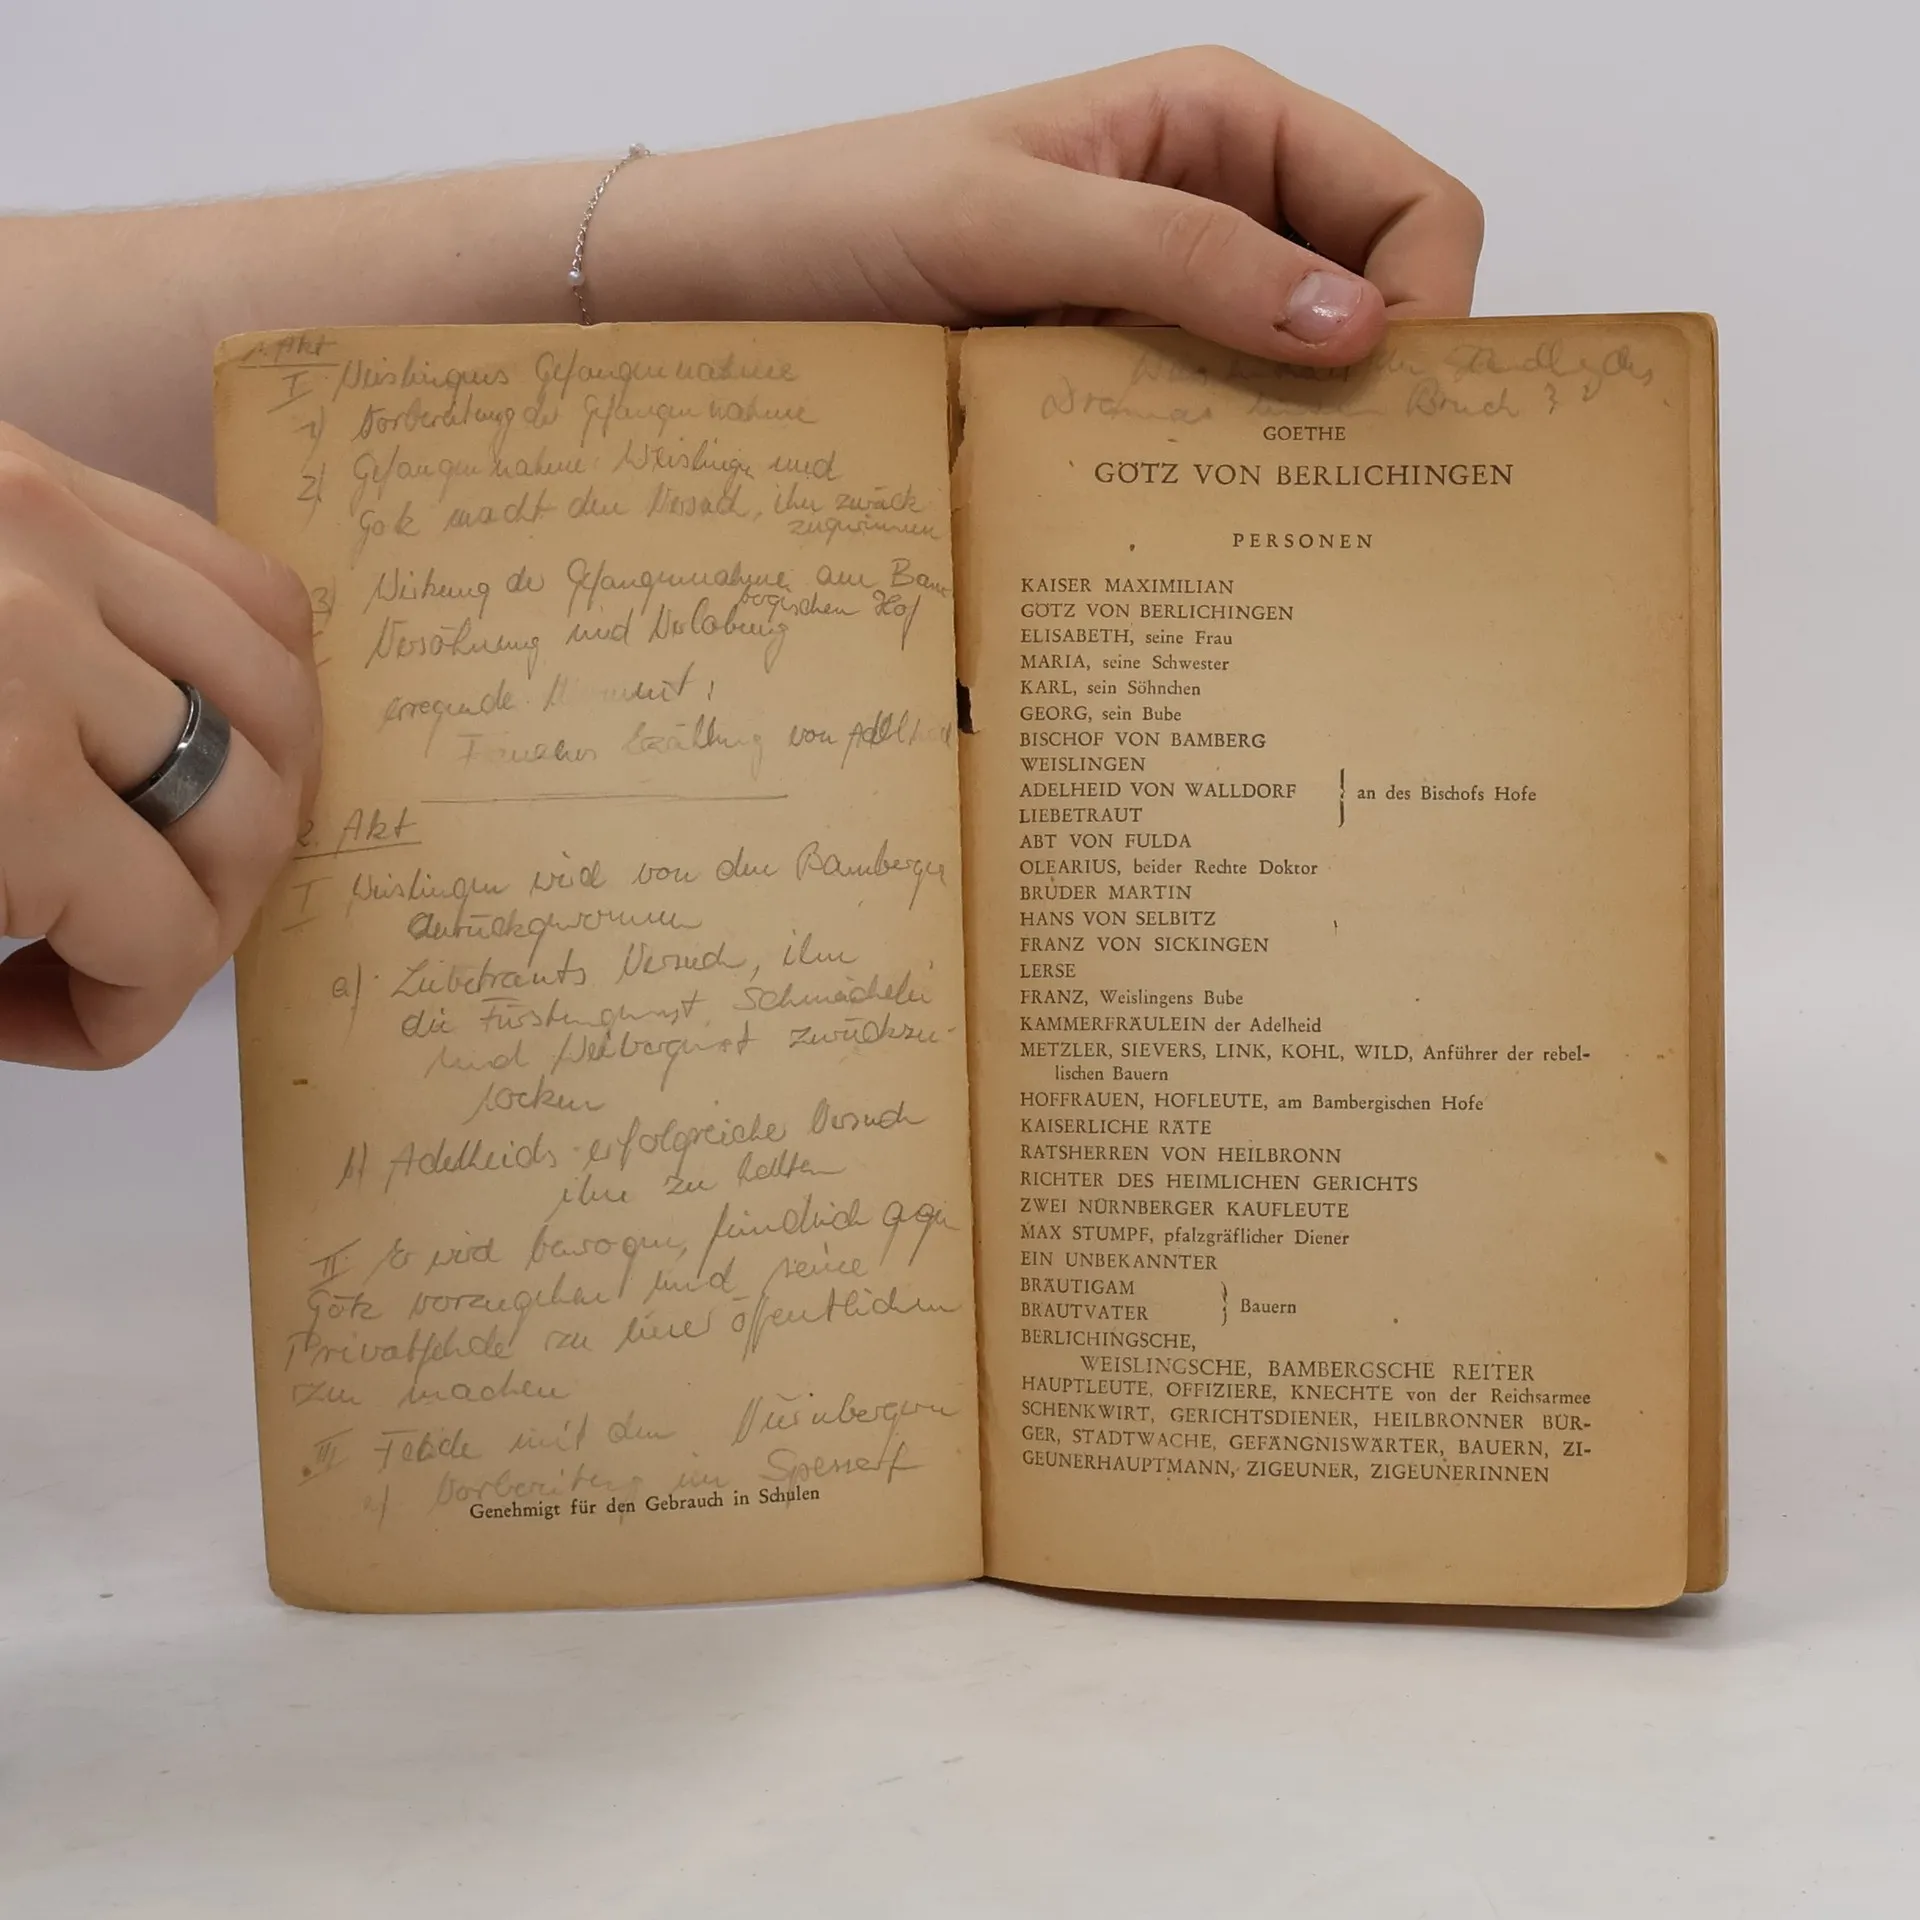 1. Akt
I. Weislingens Gefangennahme
1) Vorbereitung der Gefangennahme
2) Gefangennahme: Weislingen und
Götz macht den Versuch, ihn zurück
zugewinnen
3) Wirkung der Gefangennahme am Bam
bergischen Hof
Versöhnung und Verlobung
erregende Moment:
Erzählung von Adelheid
2. Akt
I Weislingen wird von den Bamberger
zurückgewonnen
a) Liebetrauts Versuch, ihn
die Fürstengunst, Schmeichelei
und Weibergunst zurückzu-
locken
b) Adelheids erfolgreiche Versuch
ihn zu halten
II Er wird bewogen, feindlich gegen
Götz vorzugehen und seine
Privatfehde zu einer öffentlichen
zu machen
III Fehde mit den Nürnbergern
a) Vorbereitung im Spessart
Genehmigt für den Gebrauch in Schulen
der Handlung des
Dramas einen Bruch ?
GOETHE
GÖTZ VON BERLICHINGEN
PERSONEN
KAISER MAXIMILIAN
GÖTZ VON BERLICHINGEN
ELISABETH, seine Frau
MARIA, seine Schwester
KARL, sein Söhnchen
GEORG, sein Bube
BISCHOF VON BAMBERG
WEISLINGEN
ADELHEID VON WALLDORF } an des Bischofs Hofe
LIEBETRAUT
ABT VON FULDA
OLEARIUS, beider Rechte Doktor
BRUDER MARTIN
HANS VON SELBITZ
FRANZ VON SICKINGEN
LERSE
FRANZ, Weislingens Bube
KAMMERFRÄULEIN der Adelheid
METZLER, SIEVERS, LINK, KOHL, WILD, Anführer der rebel-
lischen Bauern
HOFFRAUEN, HOFLEUTE, am Bambergischen Hofe
KAISERLICHE RÄTE
RATSHERREN VON HEILBRONN
RICHTER DES HEIMLICHEN GERICHTS
ZWEI NÜRNBERGER KAUFLEUTE
MAX STUMPF, pfalzgräflicher Diener
EIN UNBEKANNTER
BRÄUTIGAM
BRAUTVATER } Bauern
BERLICHINGSCHE,
WEISLINGSCHE, BAMBERGSCHE REITER
HAUPTLEUTE, OFFIZIERE, KNECHTE von der Reichsarmee
SCHENKWIRT, GERICHTSDIENER, HEILBRONNER BÜR-
GER, STADTWACHE, GEFÄNGNISWÄRTER, BAUERN, ZI-
GEUNERHAUPTMANN, ZIGEUNER, ZIGEUNERINNEN